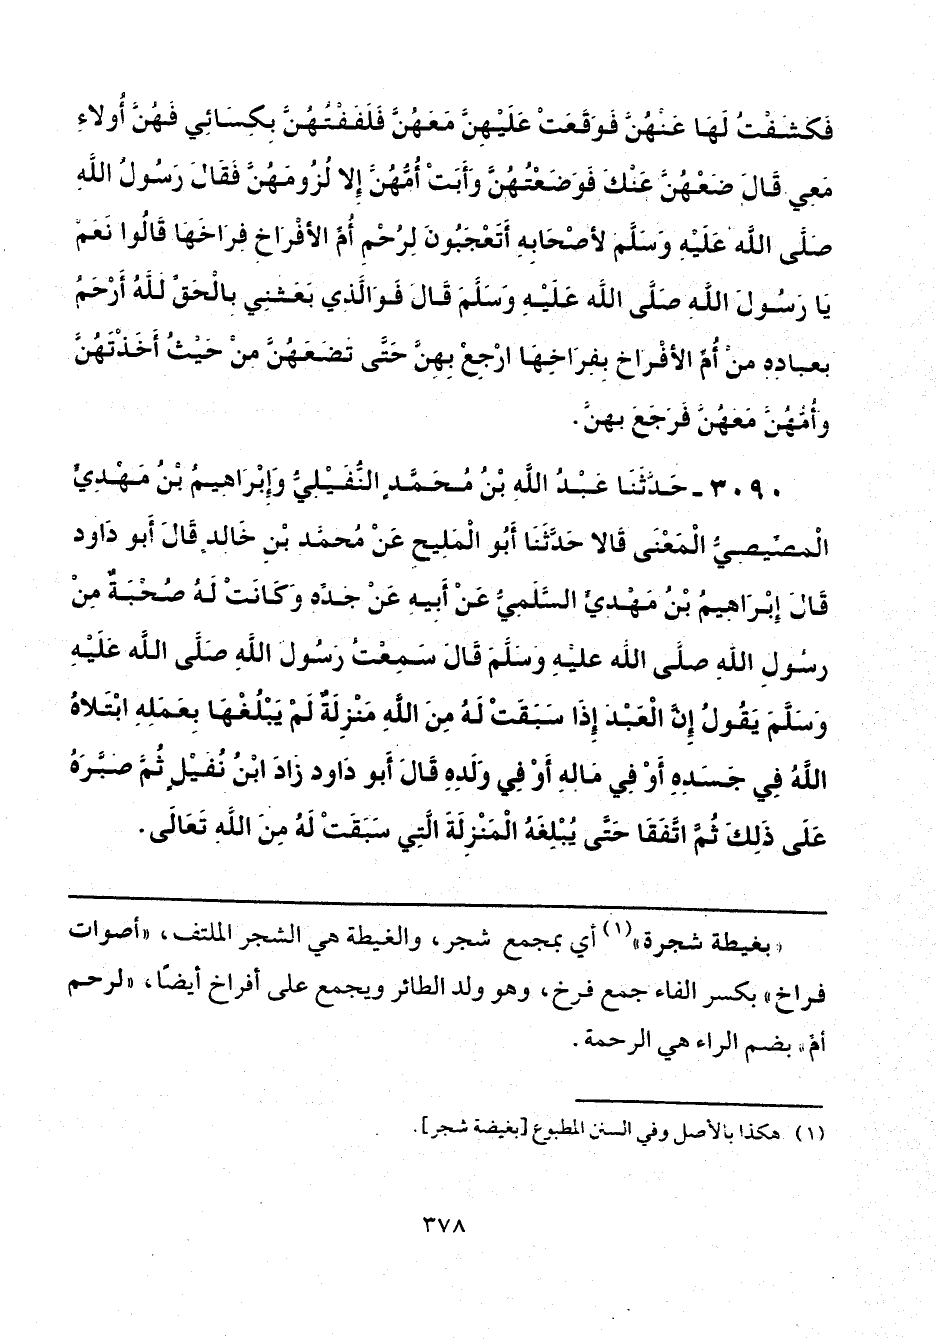 فَكَشَفْتُ لَهَا عَنْهُنَّ فَوَقَعَتْ عَلَيْهِنَّ مَعَهُنَّ فَلَفَفْتُهُنَّ بِكِسَائِي فَهُنَّ أُولاَءِ
مَعِي قَالَ ضَعْهُنَّ عَنْكَ فَوَضَعْتُهُنَّ وَأَبَتْ أُمُّهُنَّ إِلا لُزُومَهُنَّ فَقَالَ رَسُولُ اللَّهِ
صَلَّى اللَّه عَلَيْهِ وَسَلَّم لأصْحَابِهِ أَتَعْجَبُونَ لِرُحْمِ أُمِّ الأفْرَاخِ فِرَاخَهَا قَالُوا نَعَمْ
يَا رَسُولَ اللَّهِ صَلَّى اللَّه عَلَيْهِ وَسَلَّمَ قَالَ فَوَالَّذي بَعَثَنِي بِالْحَقِّ لَلَّهُ أَرْحَمُ
بِعِبادِهِ مِنْ أُمِّ الأفْرَاخِ بِفِرَاخِهَا ارْجِعْ بِهِنَّ حَتَّى تَضَعَهُنَّ مِنْ حَيْثُ أَخَذْتَهُنَّ
وَأُمُّهُنَّ مَعَهُنَّ فَرَجَعَ بِهِنَّ.
٣٠٩٠ - حَدَّثَنَا عَبْدُ اللَّهِ بْنُ مُحَمَّدٍ النُّفَيْلِيُّ وَإِبْرَاهِيمُ بْنُ مَهْدِيٍّ
الْمِصِّيصِيُّ الْمَعْنَى قَالا حَدَّثَنَا أَبُو الْمَلِيحِ عَنْ مُحَمَّدِ بْنِ خَالِدٍ قَالَ أَبو دَاود
قَالَ إِبْرَاهِيمُ بْنُ مَهْدِيٍّ السَّلَمِيُّ عَنْ أَبِيهِ عَنْ جَدِّهِ وَكَانَتْ لَهُ صُحْبَةٌ مِنْ
رسُولِ اللَّهِ صلَّى اللَّه عليْهِ وسَلَّمَ قَالَ سَمِعْتُ رَسُولَ اللَّهِ صَلَّى اللَّه عَلَيْهِ
وَسَلَّمَ يَقُولُ إِنَّ الْعَبْدَ إِذَا سَبَقَتْ لَهُ مِنَ اللَّهِ مَنْزِلَةٌ لَمْ يَبْلُغْهَا بِعَمَلِهِ ابْتَلاهُ
اللَّهُ فِي جَسَدِهِ أَوْ فِي مَالِهِ أَوْ فِي وَلَدِهِ قَالَ أَبو دَاود زَادَ ابْنُ نُفَيْلٍ ثُمَّ صَبَّرَهُ
عَلَى ذَلِكَ ثُمَّ اتَّفَقَا حَتَّى يُبْلِغَهُ الْمَنْزِلَةَ الَّتِي سَبَقَتْ لَهُ مِنَ اللَّهِ تَعَالَى.
«بغيطة شجرة»(١) أي بمجمع شجر، والغيطة هي الشجر الملتف، «أصوات
فراخ» بكسر الفاء جمع فرخ، وهو ولد الطائر ويجمع على أفراخ أيضًا، «لرحم
أمّ» بضم الراء هي الرحمة.
(١) هكذا بالأصل وفي السنن المطبوع [بغيضة شجر].
٣٧٨